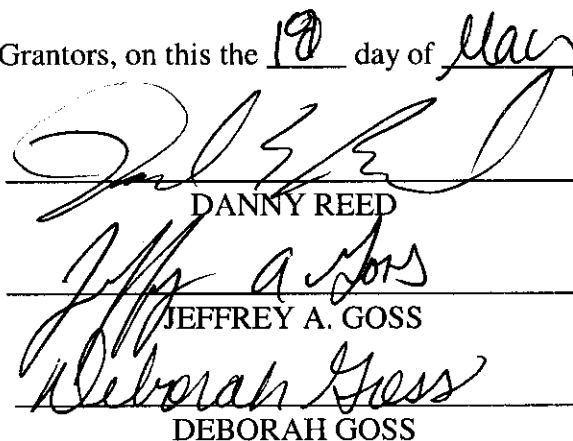 Grantors, on this the day of
DANNY REED
Jeffrey A Goss
JEFFREY A. GOSS
Deborah Goss
DEBORAH GOSS